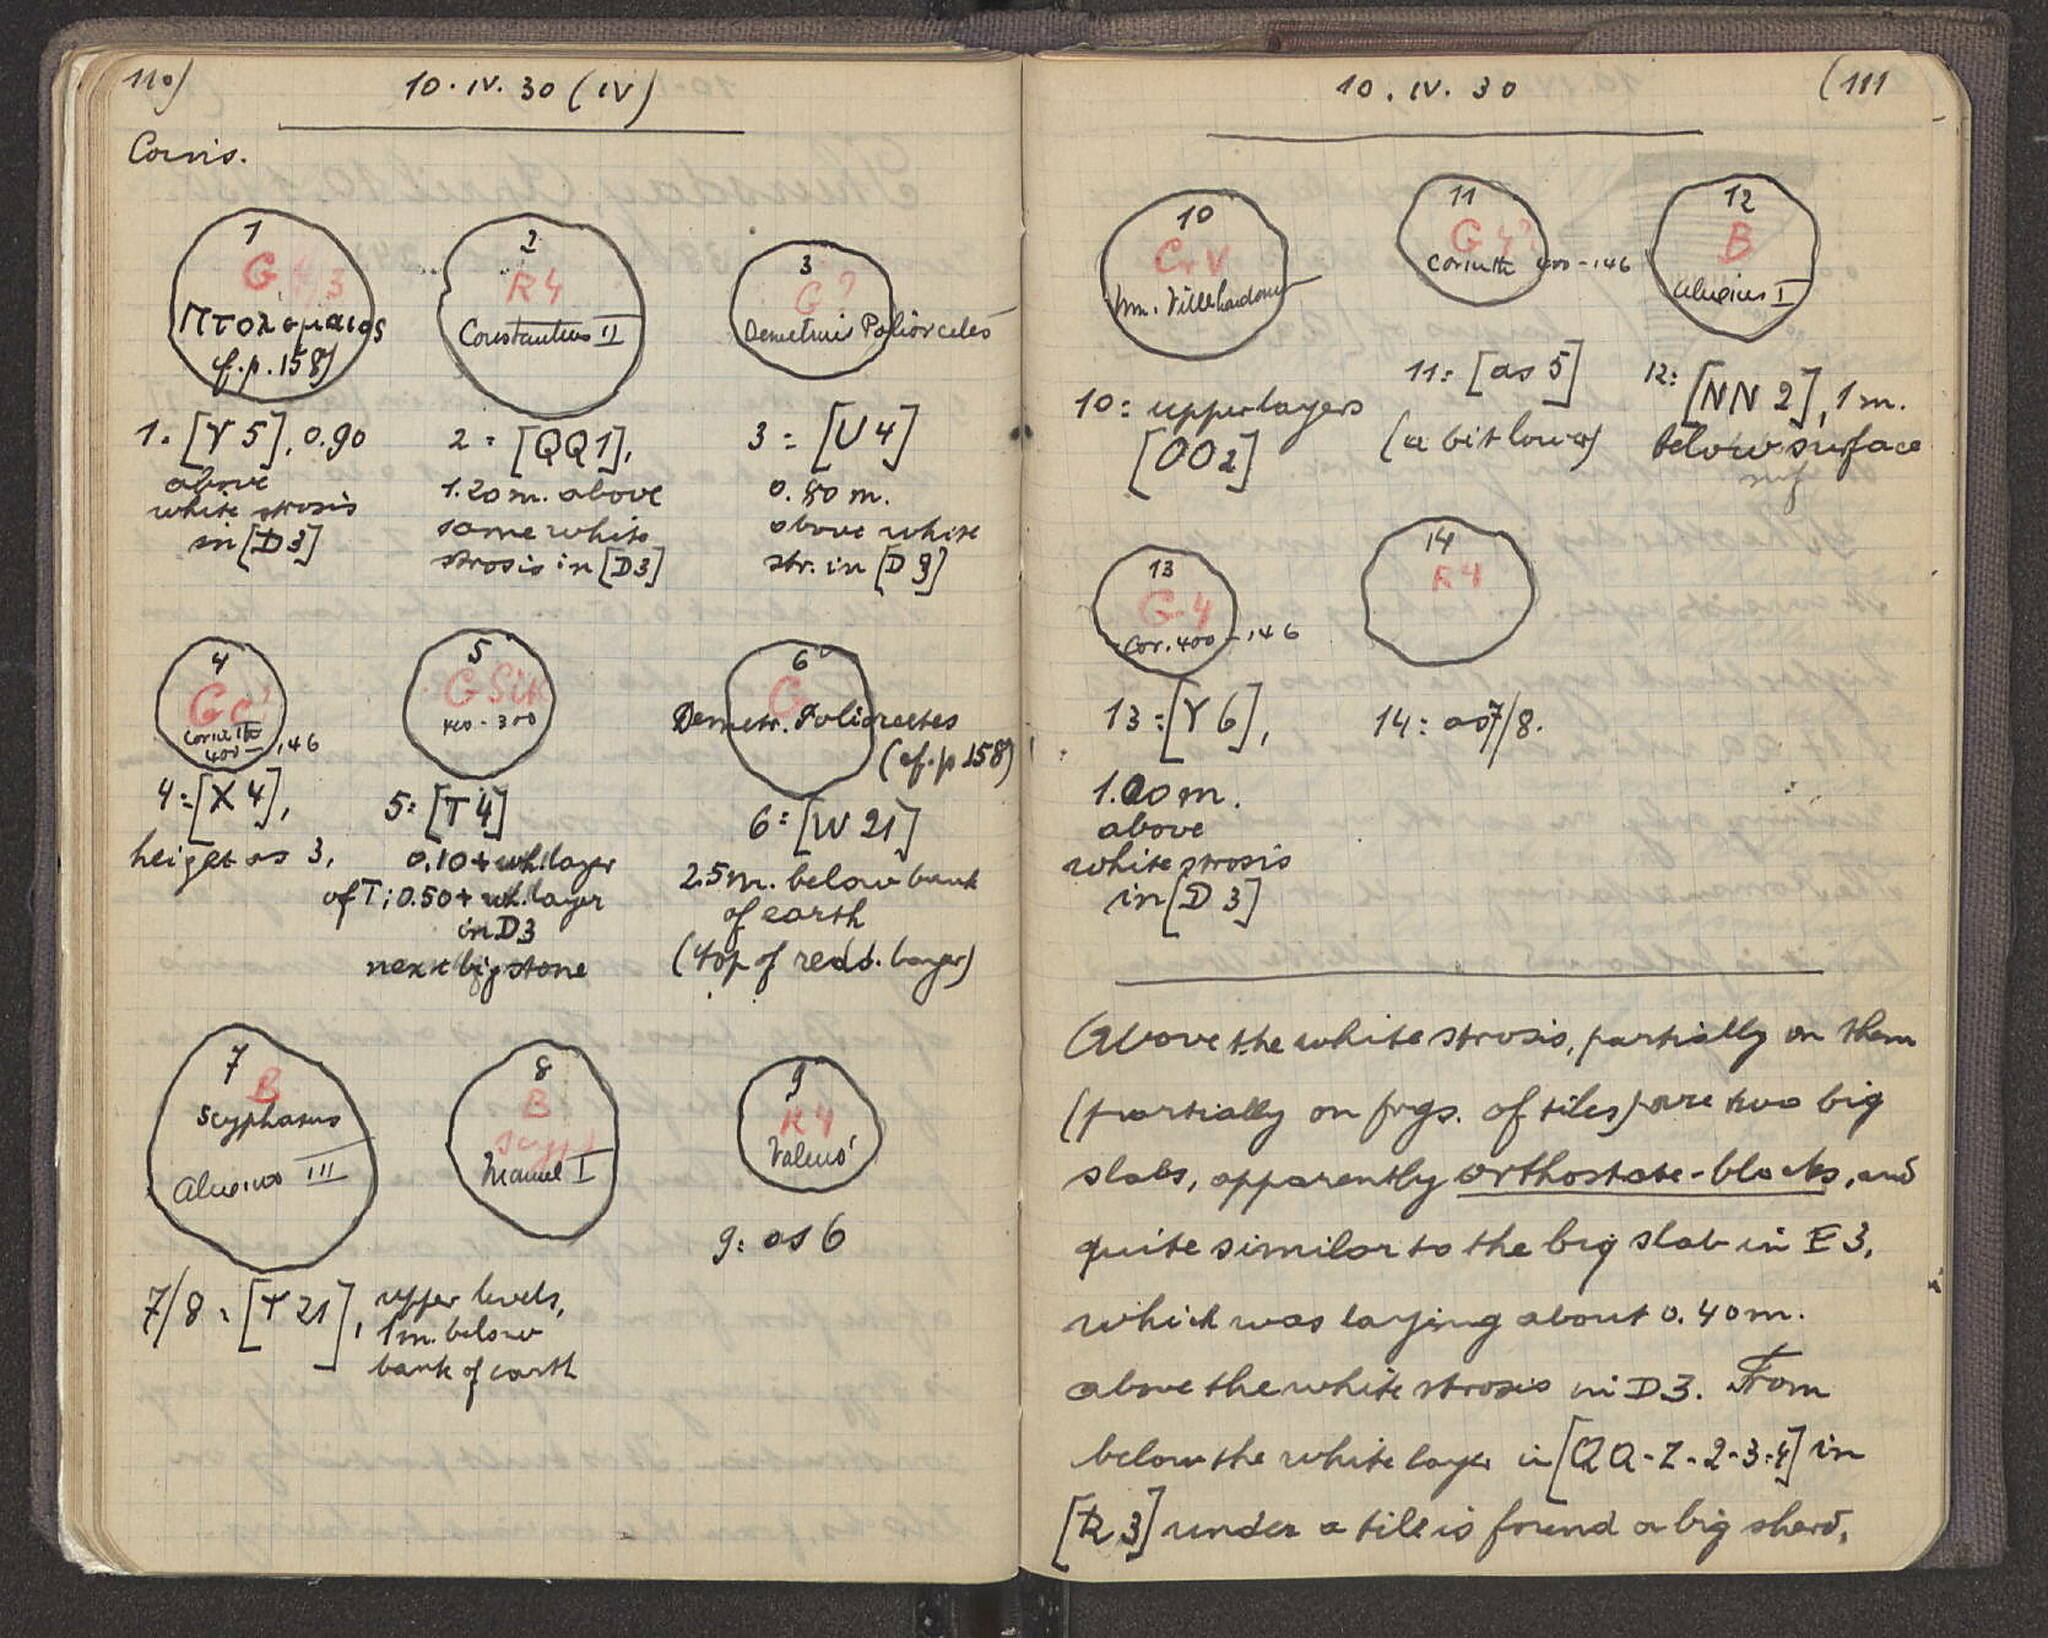 110)
10. IV. 30 (IV)
Coins.
1
G 3
Πτολεμαιος
cf. p. 158)
1. [Y 5], 0.90
above
white strosis
in [D3]
2
R4
Constantius II
2 = [QQ1],
1.20 m. above
same white
strosis in [D3]
3
G ?
Demetrius Poliorcetes
3 = [U4]
0.80 m.
above white
str. in [D 3]
4
G C?
Corinth
400-146
4 = [X4],
height as 3,
5
G Sik
400-300
5 = [T4]
0.10 + wh. layer
of T; 0.50 + wh. layer
in D3
next big stone
6
G
Demetr. Poliorcetes
(cf. p 158)
6 = [W 21]
2.5 m. below bank
of earth
(top of redd. layer)
7
B
Scyphatus
Alexius III
8
B
Scyph
Manuel I
7/8 = [T 21], upper levels,
1 m. below
bank of earth
9
R4
Valens
9: as 6
10. IV. 30
(111
10
Cr V
Wm. Villehardouin
10 = upper layers
[OO2]
11
G 4?
Corinth 400-146
11 = [as 5]
(a bit lower)
12
B
Alexius I
12: [NN 2], 1 m.
below surface
13
G-4
Cor. 400-146
13 = [Y 6],
1.00 m.
above
white strosis
in [D 3]
14
R4
14: as 7/8.
Above the white strosis, partially on them
(partially on frgs. of tiles) are two big
slabs, apparently orthostate-blocks, and
quite similar to the big slab in E3,
which was laying about 0.40 m.
above the white strosis in D3. From
below the white layer in [QQ-Z-2-3-4] in
[R 3] under a tile is found a big sherd,